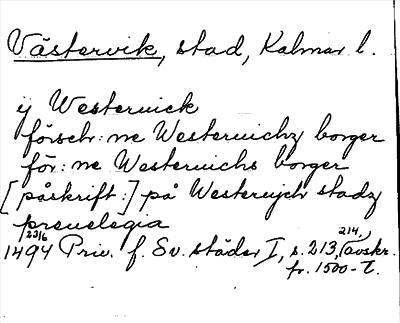 Västervik, stad, Kalmar l.
ij Westerwick
försch: ne Westerwichz borger
för: ne Westerwichs borger
[påskrift:] på Westerwijch stadz
preuelegia
1494 23/6 Priv. f. Sv. städer I, s. 213, 214, (avskr.
fr. 1500-t.